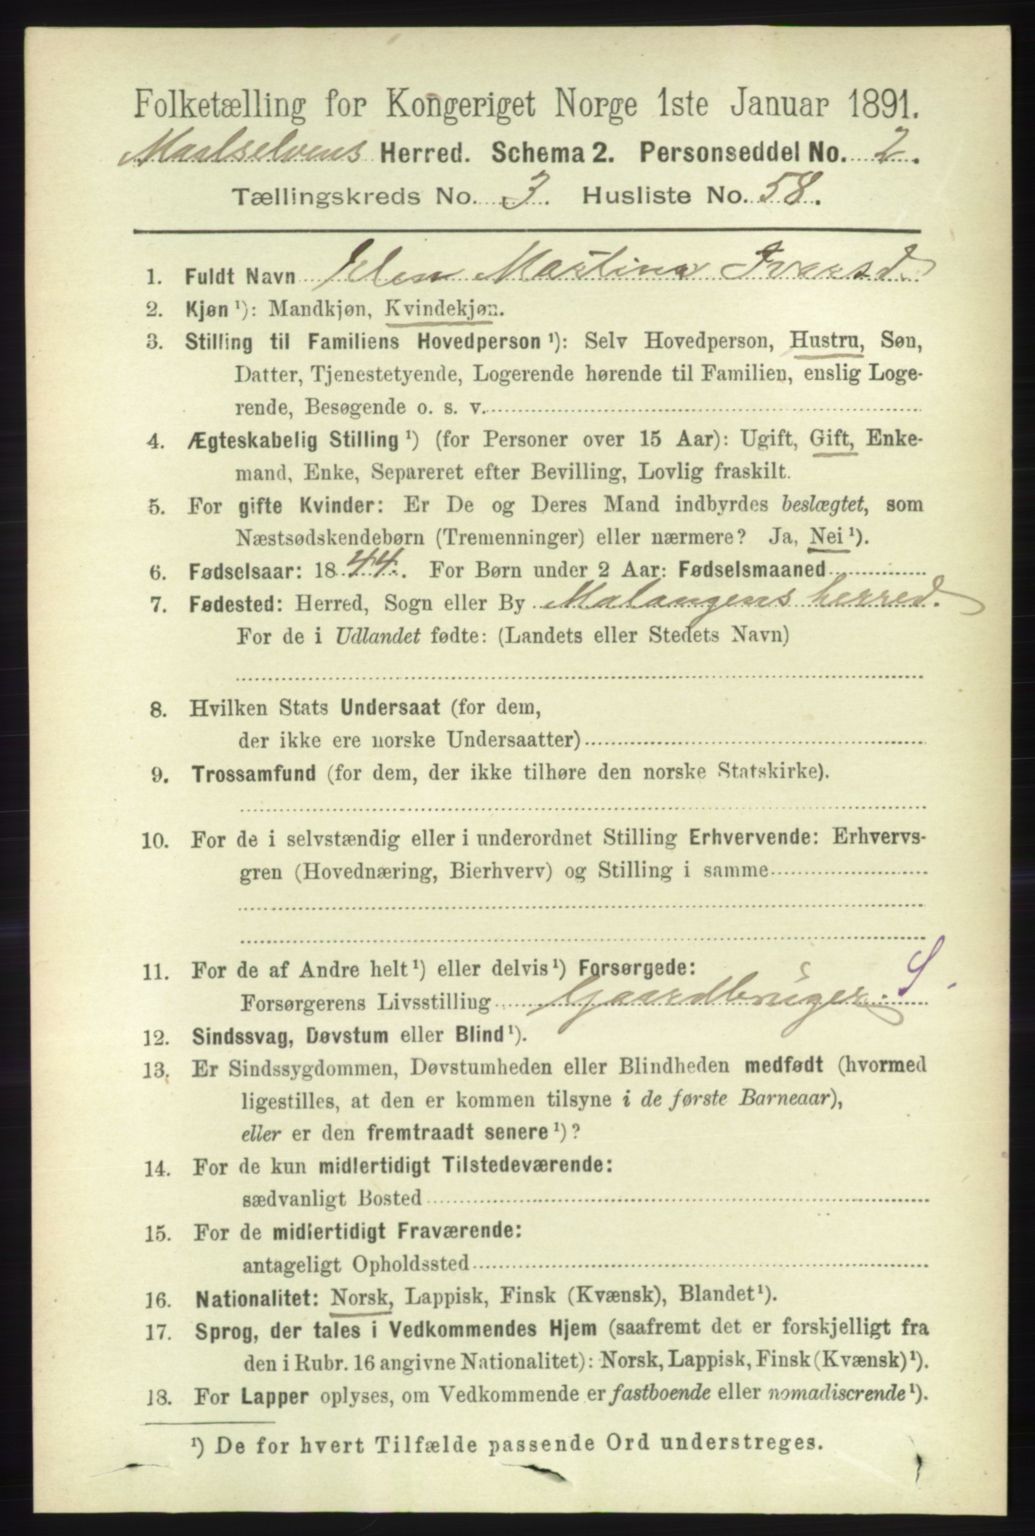 Folketælling for Kongeriget Norge 1ste Januar 1891.
Maalselvens Herred. Schema 2. Personseddel No. 2.
Tællingskreds No. 3. Husliste No. 58.
1. Fuldt Navn Elen Martina Iversd.
2. Kjøn ¹): Mandkjøn, Kvindekjøn.
3. Stilling til Familiens Hovedperson ¹): Selv Hovedperson, Hustru, Søn,
Datter, Tjenestetyende, Logerende hørende til Familien, enslig Loge-
rende, Besøgende o. s. v.
4. Ægteskabelig Stilling ¹) (for Personer over 15 Aar): Ugift, Gift, Enke-
mand, Enke, Separeret efter Bevilling, Lovlig fraskilt.
5. For gifte Kvinder: Er De og Deres Mand indbyrdes beslægtet, som
Næstsødskendebørn (Tremenninger) eller nærmere? Ja, Nei ¹).
6. Fødselsaar: 1844. For Børn under 2 Aar: Fødselsmaaned
7. Fødested: Herred, Sogn eller By Malangens herred.
For de i Udlandet fødte: (Landets eller Stedets Navn)
8. Hvilken Stats Undersaat (for dem,
der ikke ere norske Undersaatter)
9. Trossamfund (for dem, der ikke tilhøre den norske Statskirke).
10. For de i selvstændig eller i underordnet Stilling Erhvervende: Erhvervs-
gren (Hovednæring, Bierhverv) og Stilling i samme
11. For de af Andre helt ¹) eller delvis ¹) Forsørgede:
Forsørgerens Livsstilling Gaardbruger. S.
12. Sindssvag, Døvstum eller Blind ¹).
13. Er Sindssygdommen, Døvstumheden eller Blindheden medfødt (hvormed
ligestilles, at den er kommen tilsyne i de første Barneaar),
eller er den fremtraadt senere ¹)?
14. For de kun midlertidigt Tilstedeværende:
sædvanligt Bosted
15. For de midlertidigt Fraværende:
antageligt Opholdssted
16. Nationalitet: Norsk, Lappisk, Finsk (Kvænsk), Blandet ¹).
17. Sprog, der tales i Vedkommendes Hjem (saafremt det er forskjelligt fra
den i Rubr. 16 angivne Nationalitet): Norsk, Lappisk, Finsk (Kvænsk) ¹).
18. For Lapper oplyses, om Vedkommende er fastboende eller nomadiserende ¹).
¹) De for hvert Tilfælde passende Ord understreges.